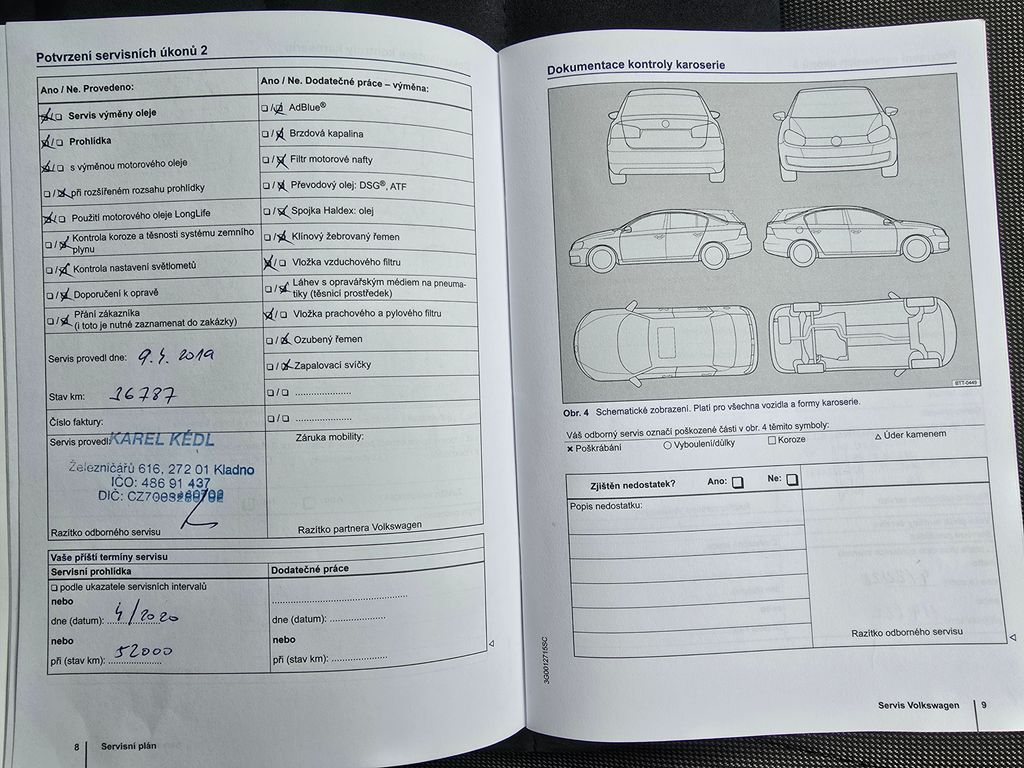 Potvrzení servisních úkonů 2
Ano / Ne. Provedeno:
Servis výměny oleje
Prohlídka
s výměnou motorového oleje
při rozšířeném rozsahu prohlídky
Použití motorového oleje LongLife
Kontrola koroze a těsnosti systému zemního
plynu
Kontrola nastavení světlometů
Doporučení k opravě
Přání zákazníka
(i toto je nutné zaznamenat do zakázky)
Servis provedl dne: 9.4. 2019
Stav km: 26787
Číslo faktury:
Servis provedl: KAREL KÉDL
Železničářů 616, 272 01 Kladno
IČO: 486 91 437
DIČ:
Razítko odborného servisu
Ano / Ne. Dodatečné práce – výměna:
AdBlue®
Brzdová kapalina
Filtr motorové nafty
Převodový olej: DSG®, ATF
Spojka Haldex: olej
Klínový žebrovaný řemen
Vložka vzduchového filtru
Láhev s opravářským médiem na pneuma-
tiky (těsnicí prostředek)
Vložka prachového a pylového filtru
Ozubený řemen
Zapalovací svíčky
Záruka mobility:
Razítko partnera Volkswagen
Vaše příští termíny servisu
Servisní prohlídka
podle ukazatele servisních intervalů
nebo
dne (datum): 4/2020
nebo
při (stav km): 52000
Dodatečné práce
dne (datum):
nebo
při (stav km):
8 Servisní plán
Dokumentace kontroly karoserie
BTT-0449
Obr. 4 Schematické zobrazení. Platí pro všechna vozidla a formy karoserie.
Váš odborný servis označí poškozené části v obr. 4 těmito symboly:
Poškrábání Vyboulení/důlky Koroze Úder kamenem
Zjištěn nedostatek? Ano: Ne:
Popis nedostatku:
Razítko odborného servisu
3G0012715SC
Servis Volkswagen 9